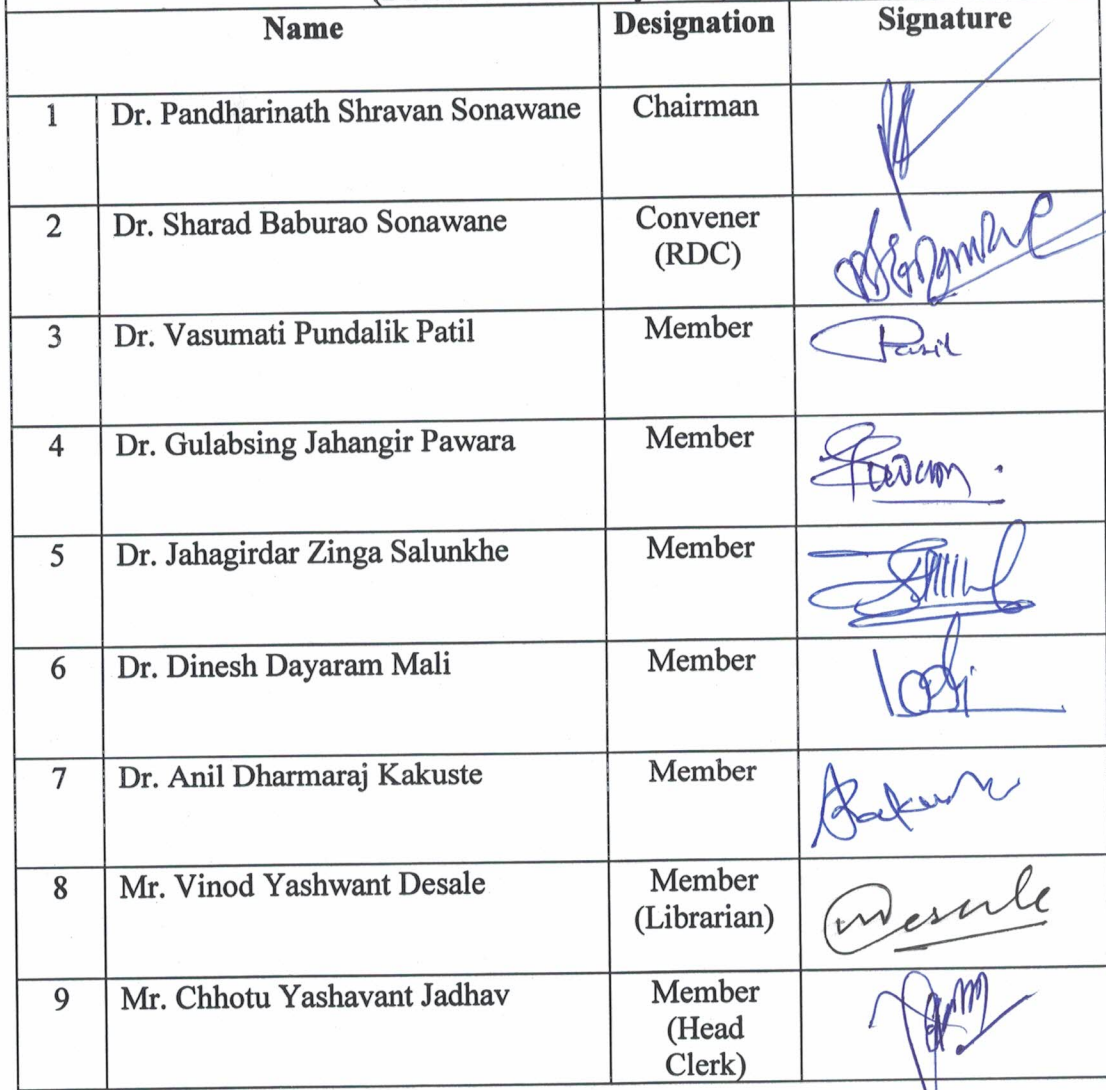 Name Designation Signature
1 Dr. Pandharinath Shravan Sonawane Chairman
2 Dr. Sharad Baburao Sonawane Convener
(RDC)
3 Dr. Vasumati Pundalik Patil Member
4 Dr. Gulabsing Jahangir Pawara Member
5 Dr. Jahagirdar Zinga Salunkhe Member
6 Dr. Dinesh Dayaram Mali Member
7 Dr. Anil Dharmaraj Kakuste Member
8 Mr. Vinod Yashwant Desale Member
(Librarian)
9 Mr. Chhotu Yashavant Jadhav Member
(Head
Clerk)